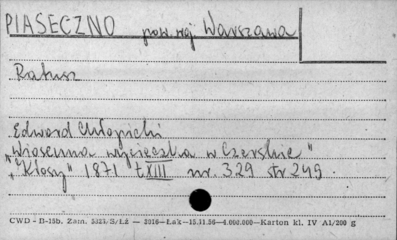 PIASECZNO pow. woj. Warszawa
Ratusz
Edward Chłopicki
"Wiosenna wycieczka w Czerskie"
"Kłosy" 1871 t XIII nr. 329 str 249.
CWD - B-15b. Zam. 5321/S/Lż — 2018—Łak—15.11.56—4.000.000—Karton kl. IV A1/200 g